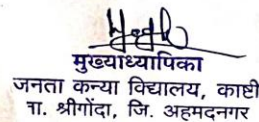 मुख्याध्यापिका
जनता कन्या विद्यालय, काष्टी
ता. श्रीगोंदा, जि. अहमदनगर